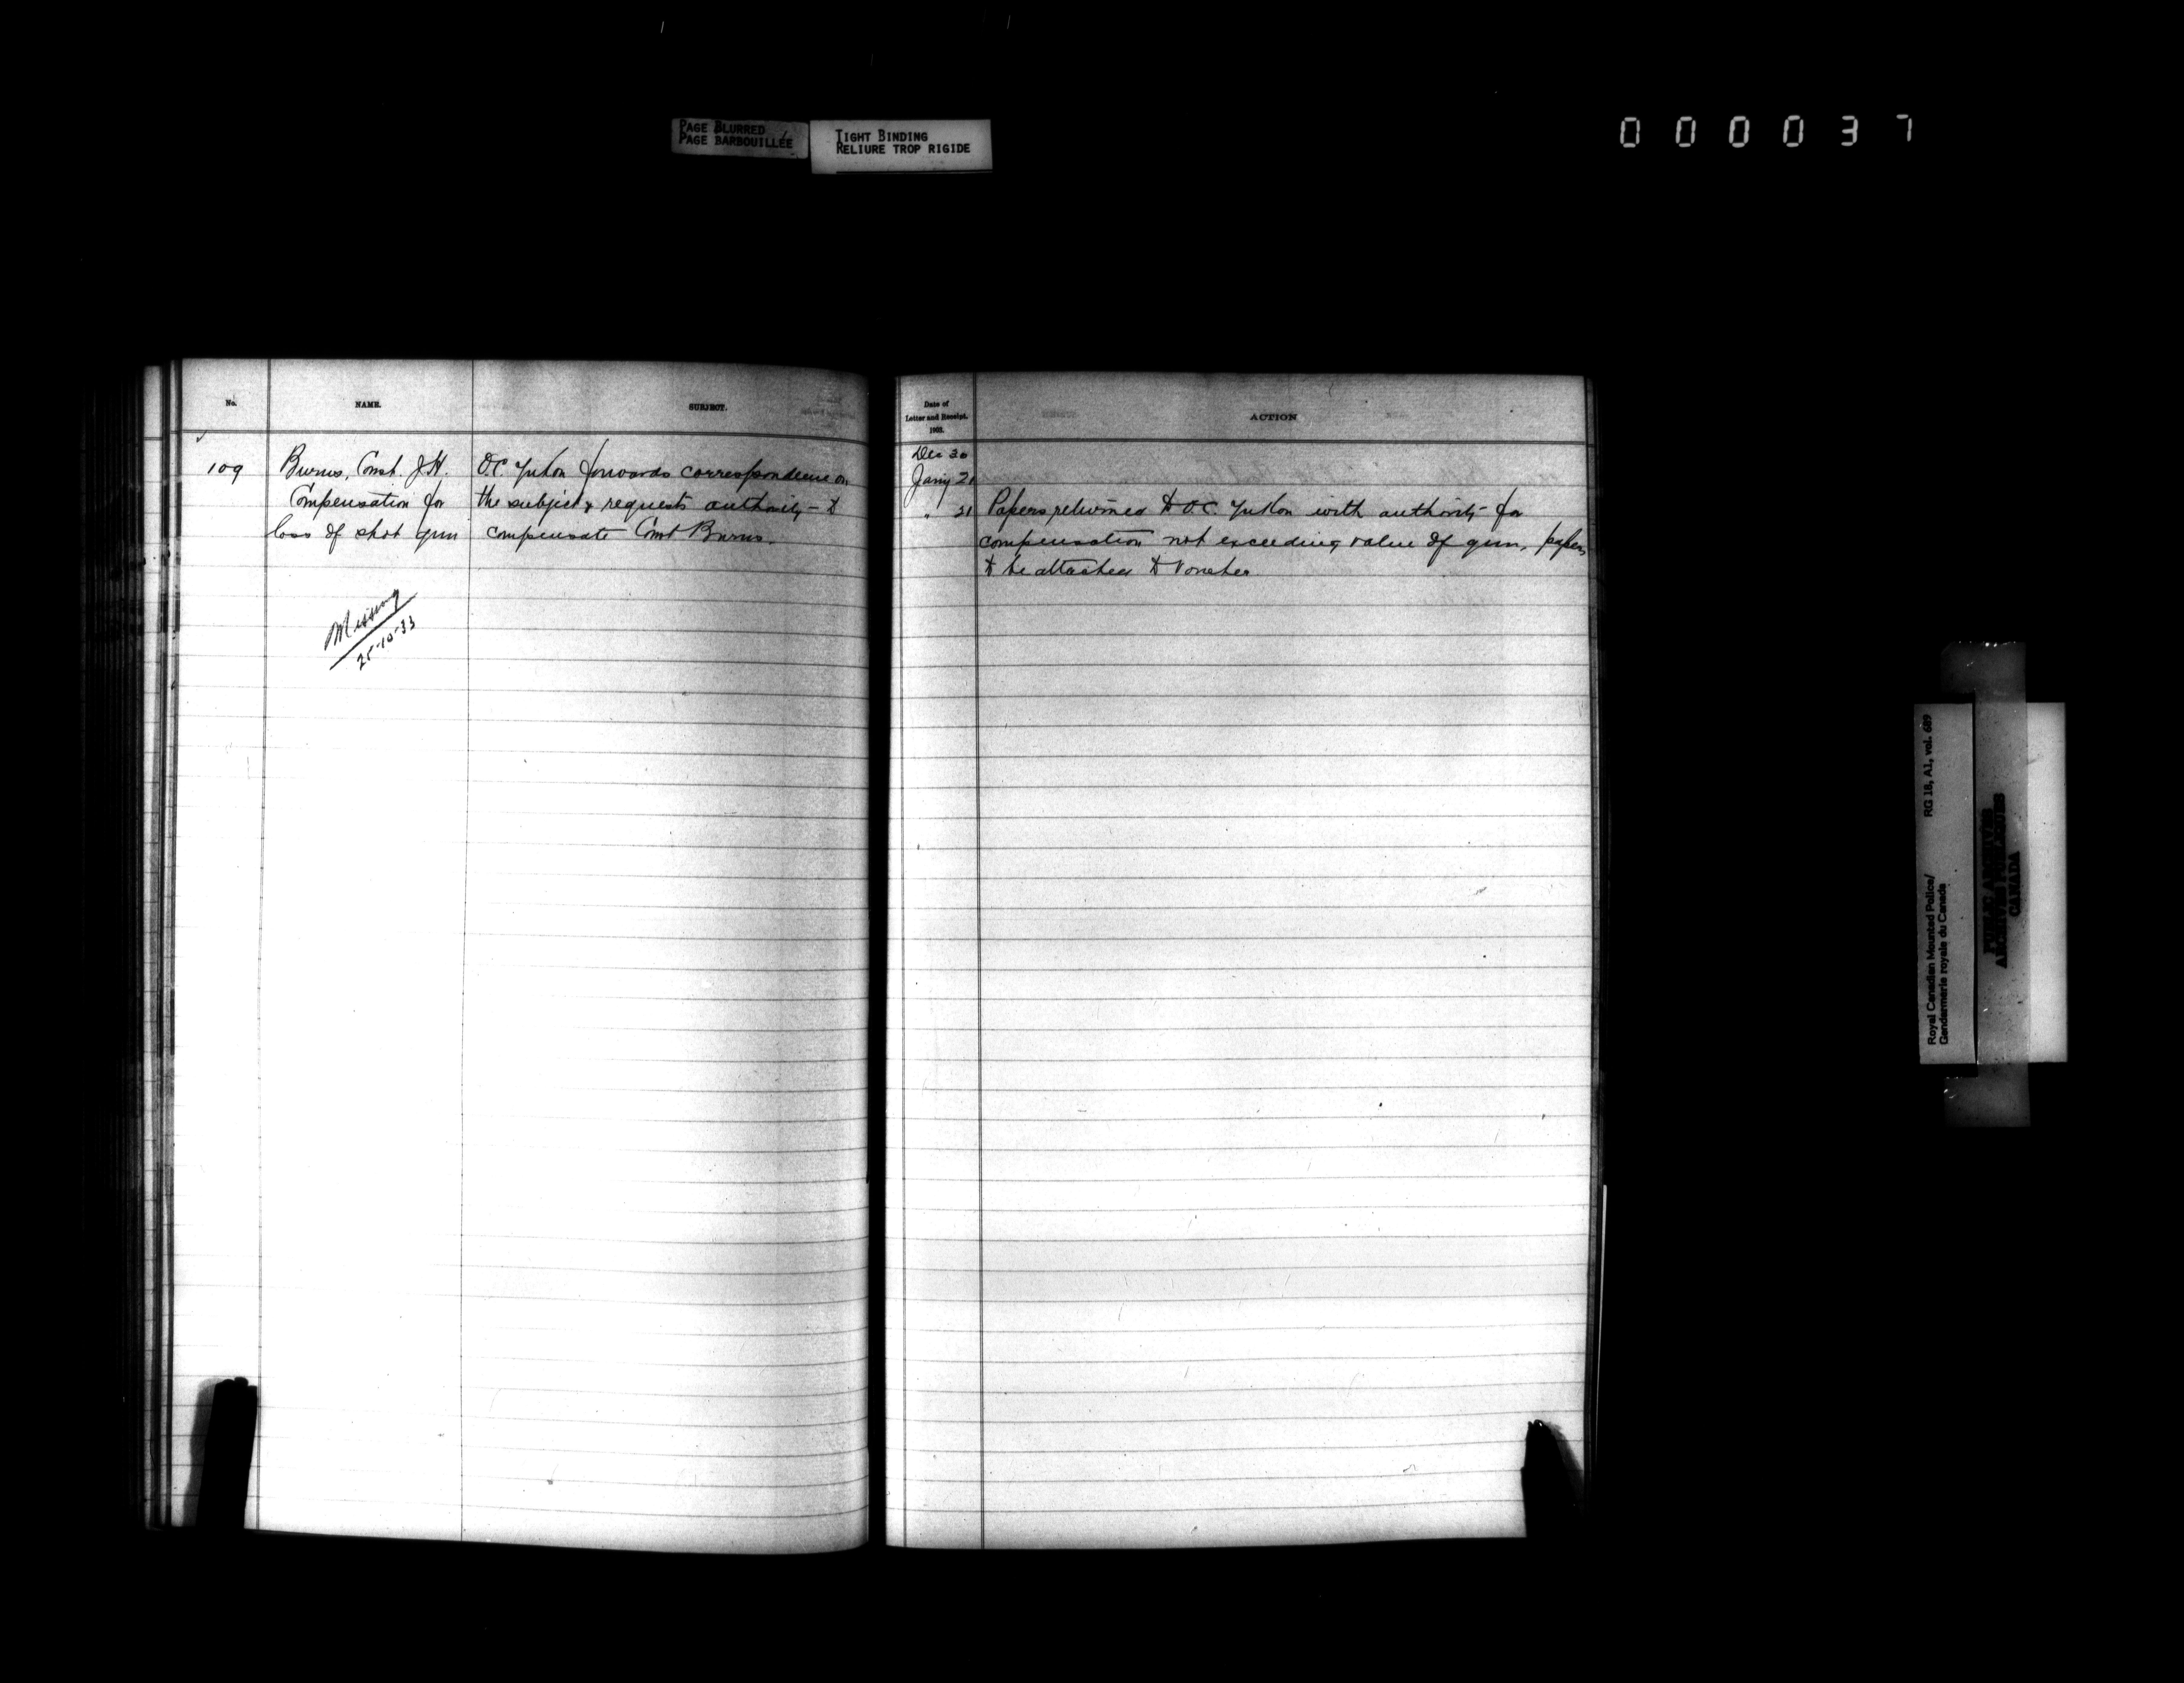 PAGE BLURRED
PAGE BARBOUILLÉE
TIGHT BINDING
RELIURE TROP RIGIDE
000037
No.
NAME.
SUBJECT.
109
Burns, Const. J.H.
Compensation for
loss of shot gun
Missing
25-10-33
O.C. Yukon forwards correspondence on
the subject & requests authority – to
compensate Const Burns.
Date of
Letter and Receipt.
1903.
ACTION
Dec 30
Jany 21
" 21
Papers returned to O.C. Yukon with authority for
compensation not exceeding value of gun, papers
to be attached to voucher
Royal Canadian Mounted Police/
Gendarmerie royale du Canada
RG 18, A1, vol. 689
PUBLIC ARCHIVES
ARCHIVES PUBLIQUES
CANADA